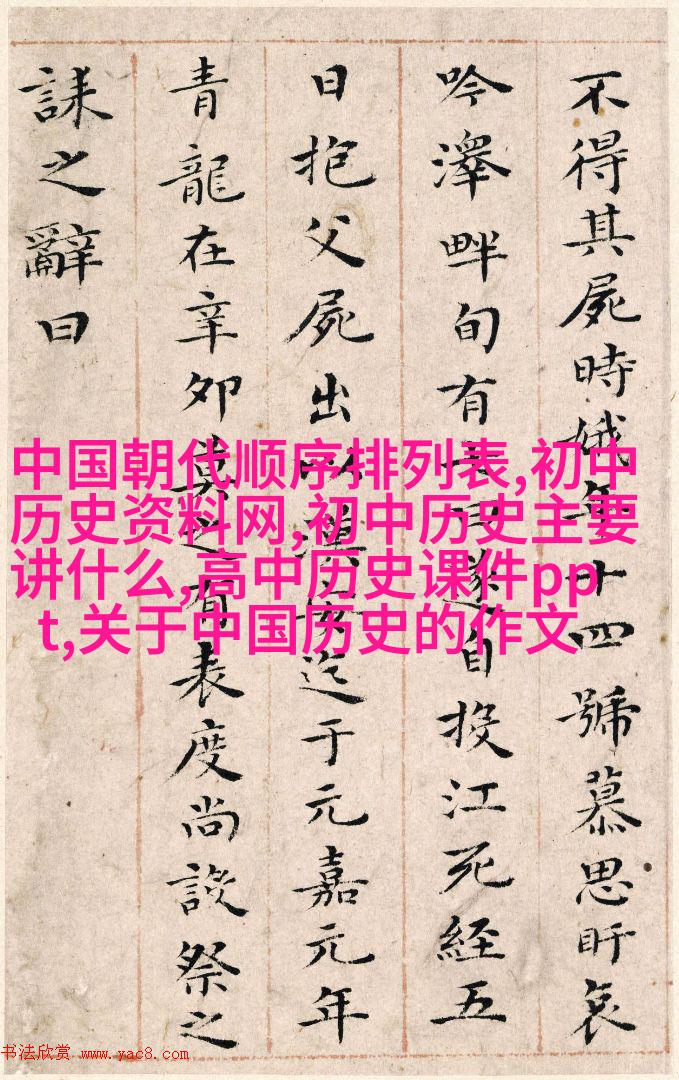 不得其屍時娥年十四號慕思盱哀
吟澤畔旬有七日遂自投江死經五
日抱父屍出以漢安迄于元嘉元年
青龍在辛卯莫之有表度尚設祭之
誄之辭曰
中国朝代顺序排列表,初中
历史资料网,初中历史主要
讲什么,高中历史课件pp
t,关于中国历史的作文
书法欣赏 www.yac8.com